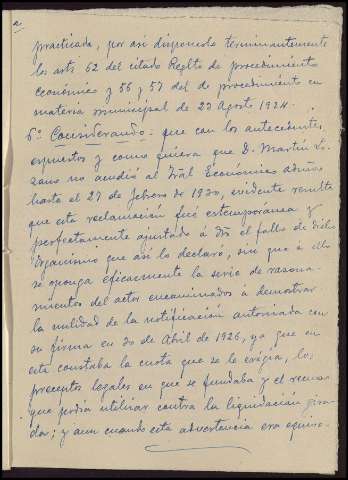 practicada, por asi disponerlo terminantemente
los arts 62 del citado Reglto de procedimiento
económico y 55 y 57 del de procedimiento en
materia municipal de 23 Agosto 1924.
6º Considerando: que con los antecedentes
expuestos y como quiera que D. Martin Lo-
zano no acudió al Tral Económico admvo
hasta el 27 de febrero de 1930, evidente resulta
que esta reclamación fué extemporánea y
perfectamente ajustado á Dº el fallo de dicho
Organismo que asi lo declaró, sin que á ello
se oponga eficazmente la serie de razona-
mientos del actor encaminados á demostrar
la nulidad de la notificación autorizada con
su firma en 30 de Abril de 1926, ya que en
esta constaba la cuota que se le exigia, los
preceptos legales en que se fundaba y el recurso
que podia utilizar contra la liquidación gira-
da; y aun cuando esta advertencia era equivo-